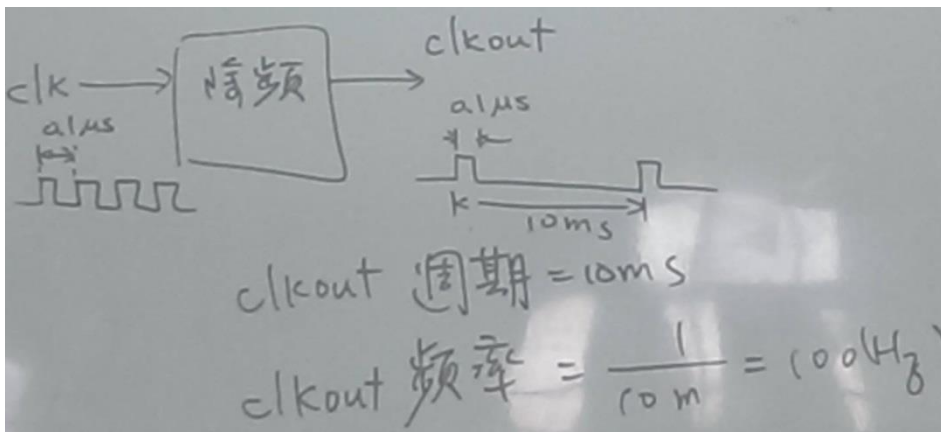 clkout
clk
降頻
0.1μs
0.1μs
10ms
clkout 週期=10ms
clkout 頻率 = 1/10m = 100(Hz)